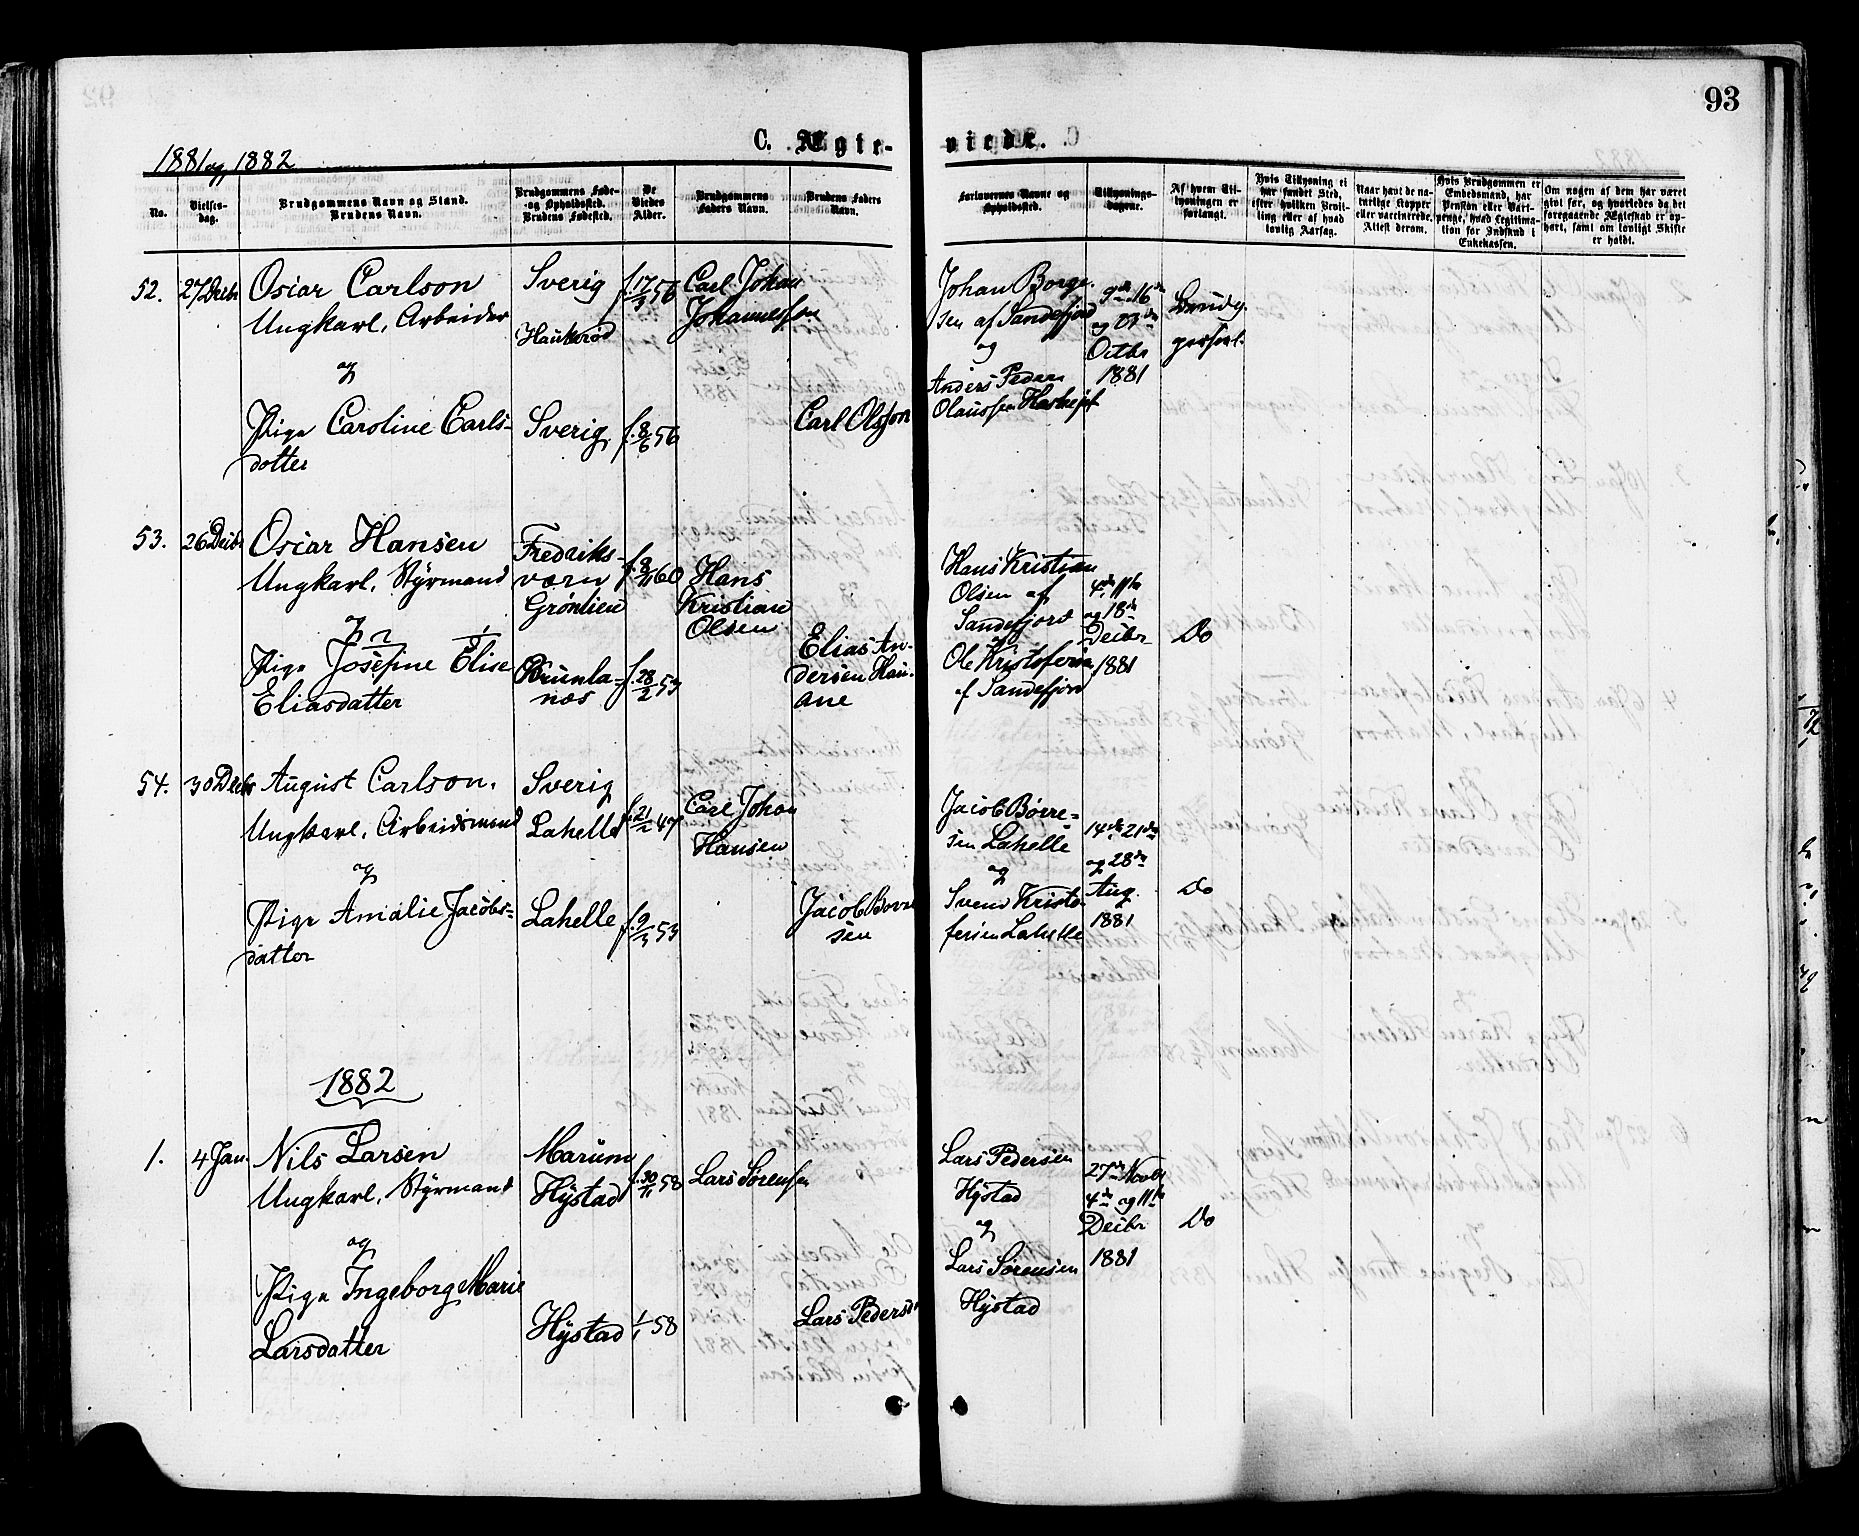 93
C. Ægte-
viede.
1881 og 1882
No.
Vielses-
dag.
Brudgommens Navn og Stand.
Brudens Navn.
Brudgommens Føde-
og Opholdssted.
Brudens Fødested.
De
Viedes
Alder.
Brudgommens
Faders Navn.
Brudens Faders
Navn.
Forlovernes Navne og
Opholdssted.
Tillysnings-
dagene.
Af hvem Til-
lysningen er
forlangt.
Hvis Tillysning ei
har fundet Sted,
efter hvilken Bevil-
ling eller af hvad
lovlig Aarsag.
Naar havt de na-
turlige Kopper
eller vaccinerede,
Attest derom.
Hvis Brudgommen er
Embedsmand, har
Pension eller Vart-
penge, hvad Legitima-
tion for Indskud i
Enkekassen.
Om nogen af dem har været
gift før, og hvorledes da det
foregaaende Ægteskab er op-
hørt, samt om lovligt Skifte
er holdt.
52.
27 Decbr
Oscar Carlson
Ungkarl, Arbeider
og
Pige Caroline Carls-
datter
Sverig
Haukerød
Sverig
f. 17/9 56
f. 8/6 56
Carl Johan
Johannesson
Carl Olsson
Johan Borge-
sen af Sandefjord
og
Anders Peder
Olaussen
9de 16de
og 23de
Octbr
1881
Brudg.
personl.
53.
26 Decbr
Oscar Hansen
Ungkarl, Styrmand
og
Pige Josefine Elise
Eliasdatter
Fredriks-
værn
Grønlien
Brunla-
næs
f. 8/11 60
f. 28/2 53
Hans
Kristian
Olsen
Elias An-
dersen Hau-
ane
Hans Kristian
Olsen af
Sandefjord
og
Ole Kristofersen
af Sandefjord
4de 11te
og 18de
Decbr
1881
Do
54.
30 Decbr
August Carlson,
Ungkarl, Arbeidsmand
og
Pige Amalie Jacobs-
datter
Sverig
Lahelle
Lahelle
f. 21/2 47
f. 9/3 53
Carl Johan
Hansen
Jacob Borre-
sen
Jacob Børre-
sen Lahelle
og
Svend Kristo-
fersen Lahelle
14de 21de
og 28de
Aug.
1881
Do
1882
1.
4 Jan.
Nils Larsen
Ungkarl, Styrmand
og
Pige Ingeborg Marie
Larsdatter
Marum
Hystad
Hystad
f. 30/11 58
1/1 58
Lars Sørensen
Lars Pedersen
Lars Pedersen
Hystad
og
Lars Sørensen
Hystad
27de Novbr
4de og 11te
Decbr
1881
Do